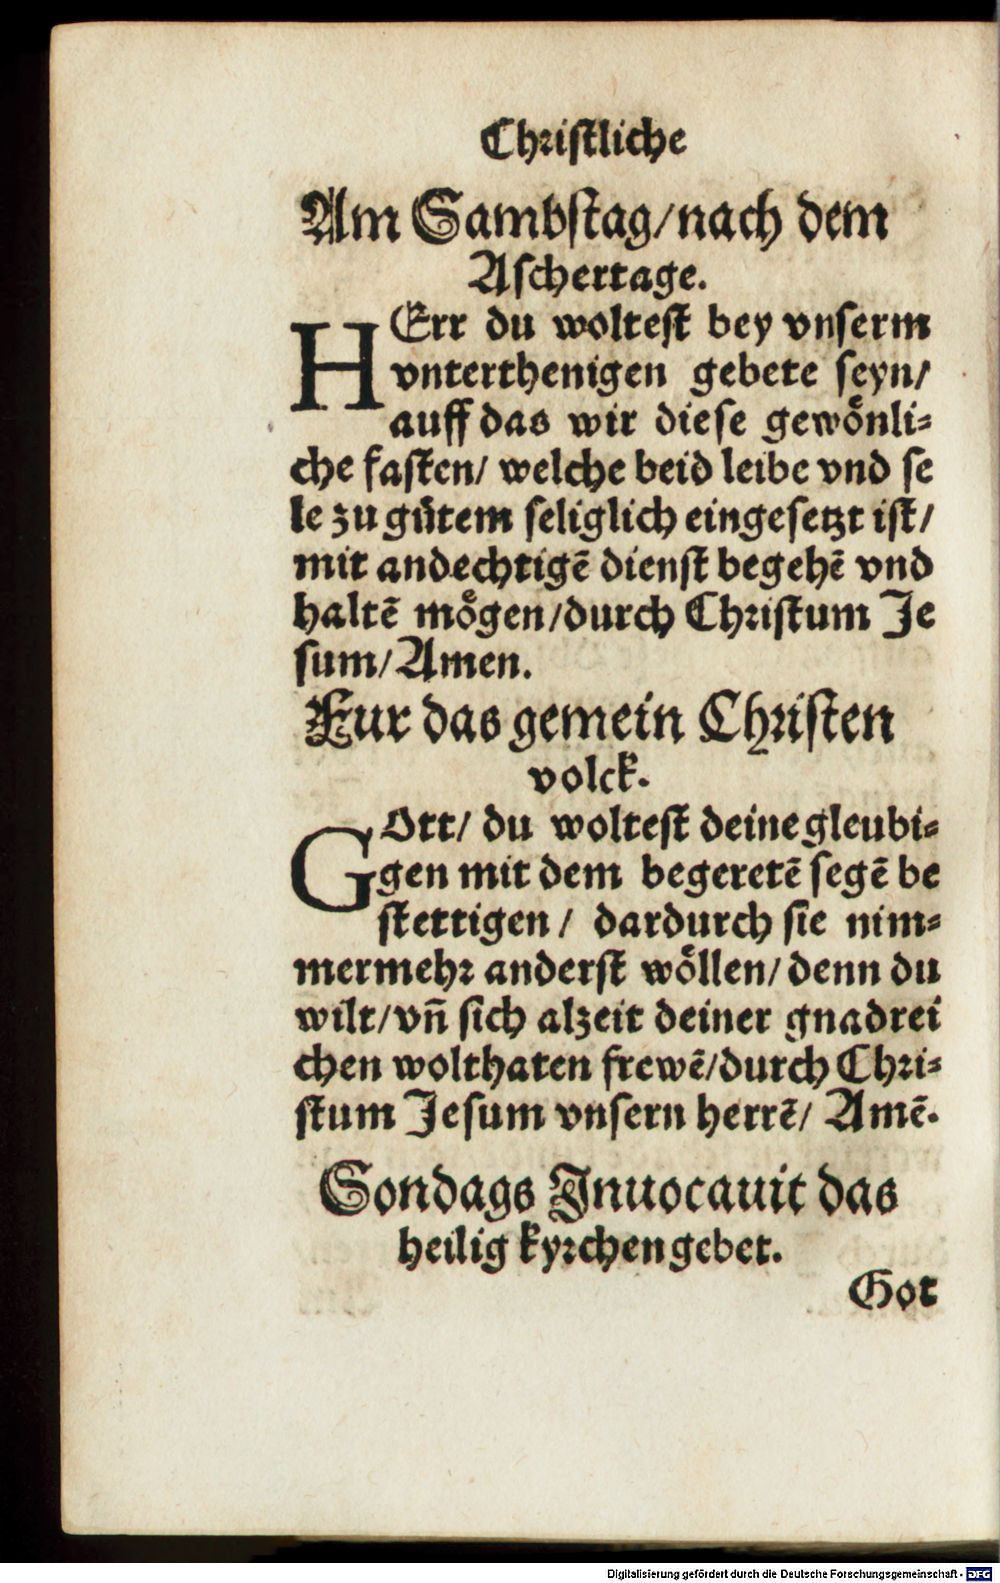 Christliche
Am Sambstag/nach dem
Aschertage.
HErr du woltest bey vnserm
vnterthenigen gebete seyn/
auff das wir diese gewoͤnli⸗
che fasten/ welche beid leibe vnd se
le zu guͤtem seliglich eingesetzt ist/
mit andechtigẽ dienst begehẽ vnd
haltẽ moͤgen/durch Christum Je
sum/Amen.
Fur das gemein Christen
volck.
GOtt/ du woltest deine gleubi⸗
gen mit dem begeretẽ segẽ be
stettigen/ dardurch sie nim⸗
mermehr anderst woͤllen/denn du
wilt/vñ sich alzeit deiner gnadrei
chen wolthaten frewẽ/durch Chri⸗
stum Jesum vnsern herrẽ/ Amẽ.
Sondags Inuocauit das
heilig kyrchen gebet.
Got
Digitalisierung gefördert durch die Deutsche Forschungsgemeinschaft - DFG